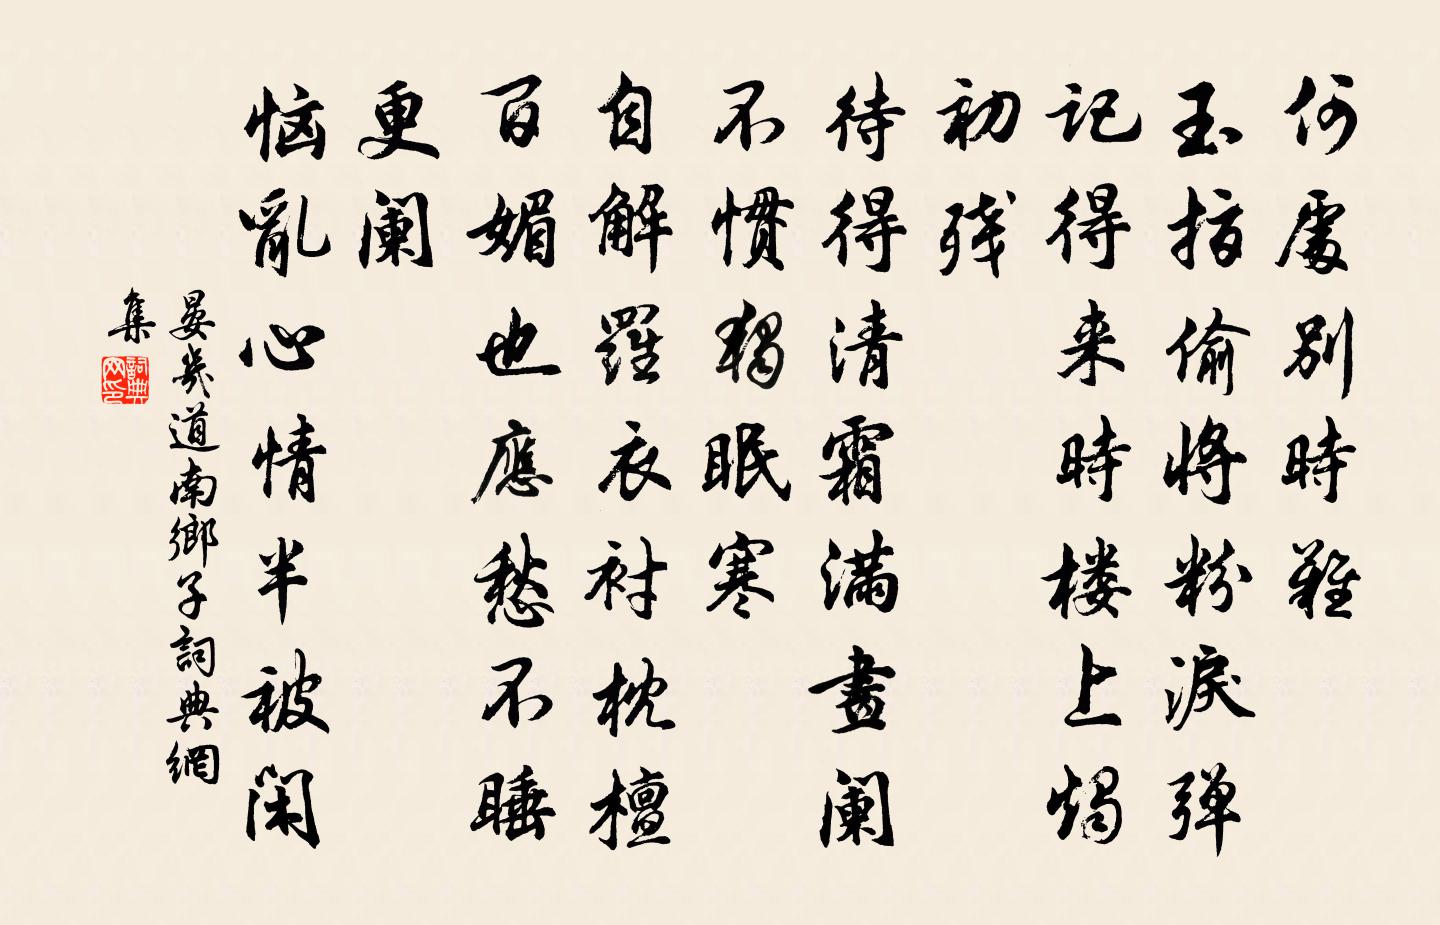 何處別時難
玉指偷將粉淚彈
记得来時楼上燭
初残
待得清霜滿畫阑
不惯獨眠寒
自解羅衣衬枕檀
百媚也應愁不睡
更阑
恼亂心情半被闲
晏幾道南鄉子詞典網
集
詞典网印